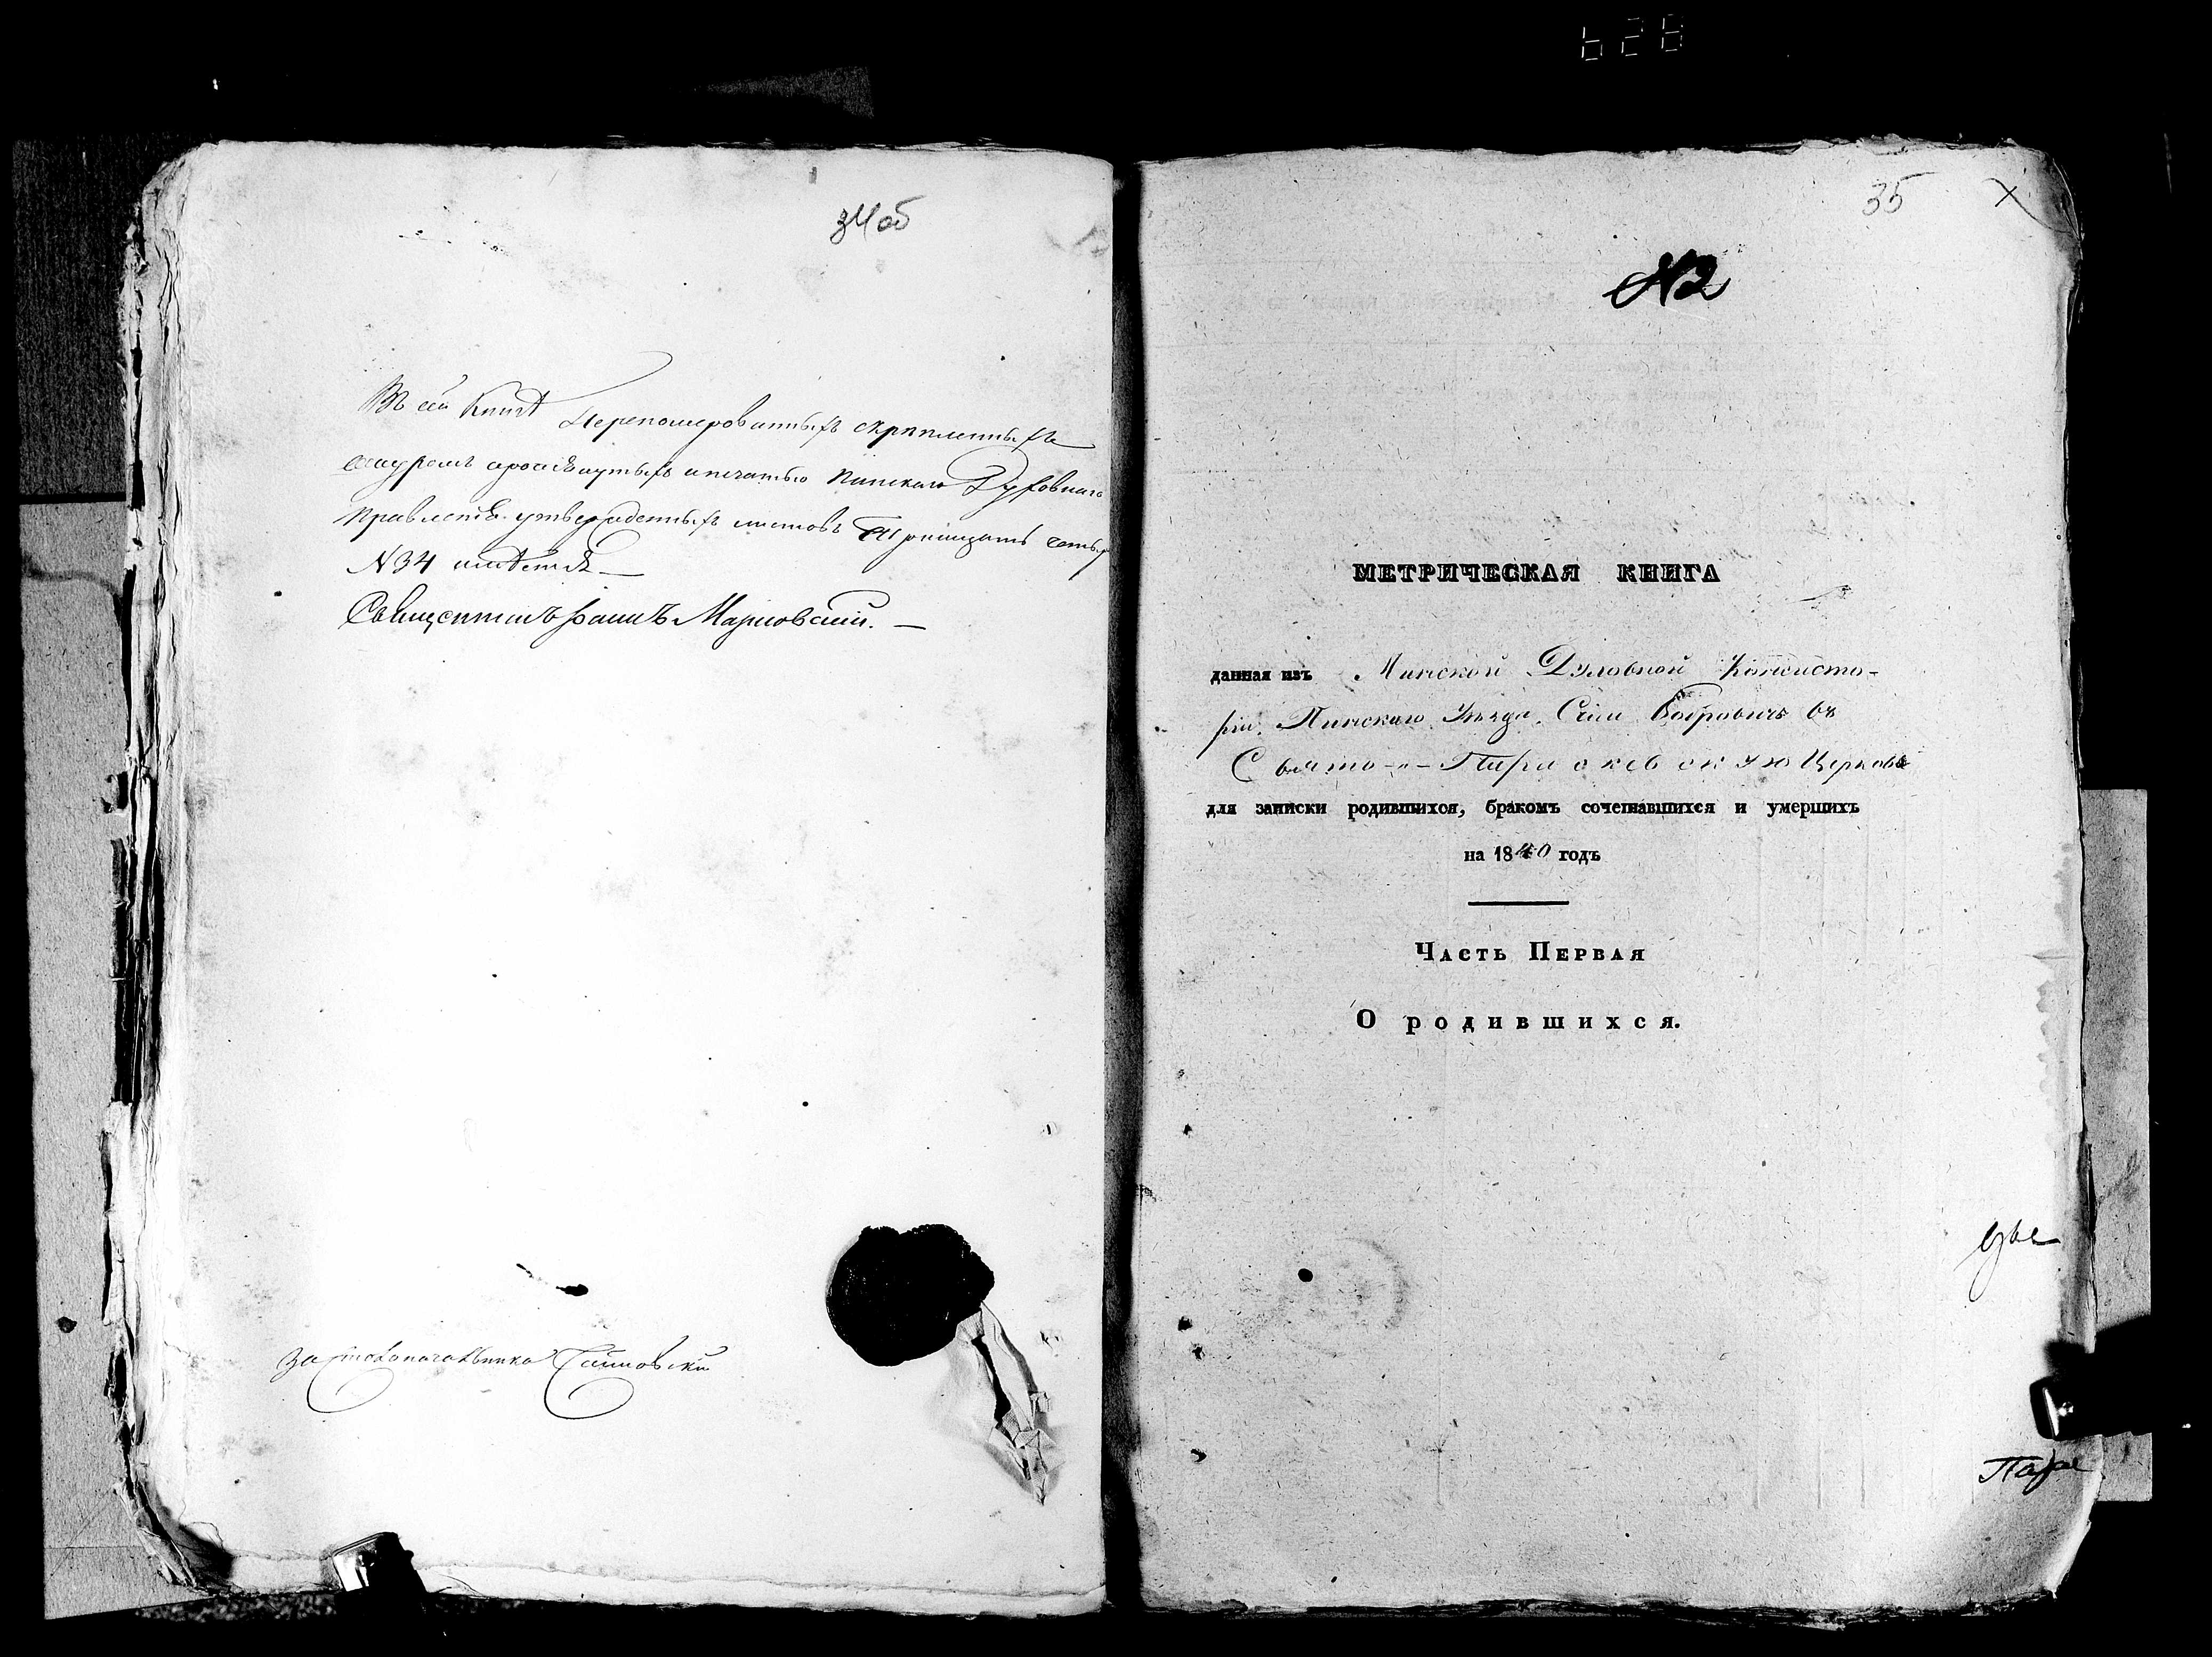 34 об
Въ сей Книгѣ Перенумерованныхъ скрѣпленныхъ
шнуромъ просунутыхъ и печатью Пинскаго Духовнаго
Правленія утвержденныхъ листовъ Тридцать четыр
N 34 имѣется
Священникъ Марковский.
За столоначальника
35
№ 2
МЕТРИЧЕСКАЯ КНИГА
данная изъ Минской Духовной Консисто-
ріи, Пинскаго Уѣзда, Села Бобровичъ въ
Свято-Параскевскую Церковь
для записки родившихся, бракомъ сочетавшихся и умершихъ
на 1840 годъ
Часть Первая
О родившихся.